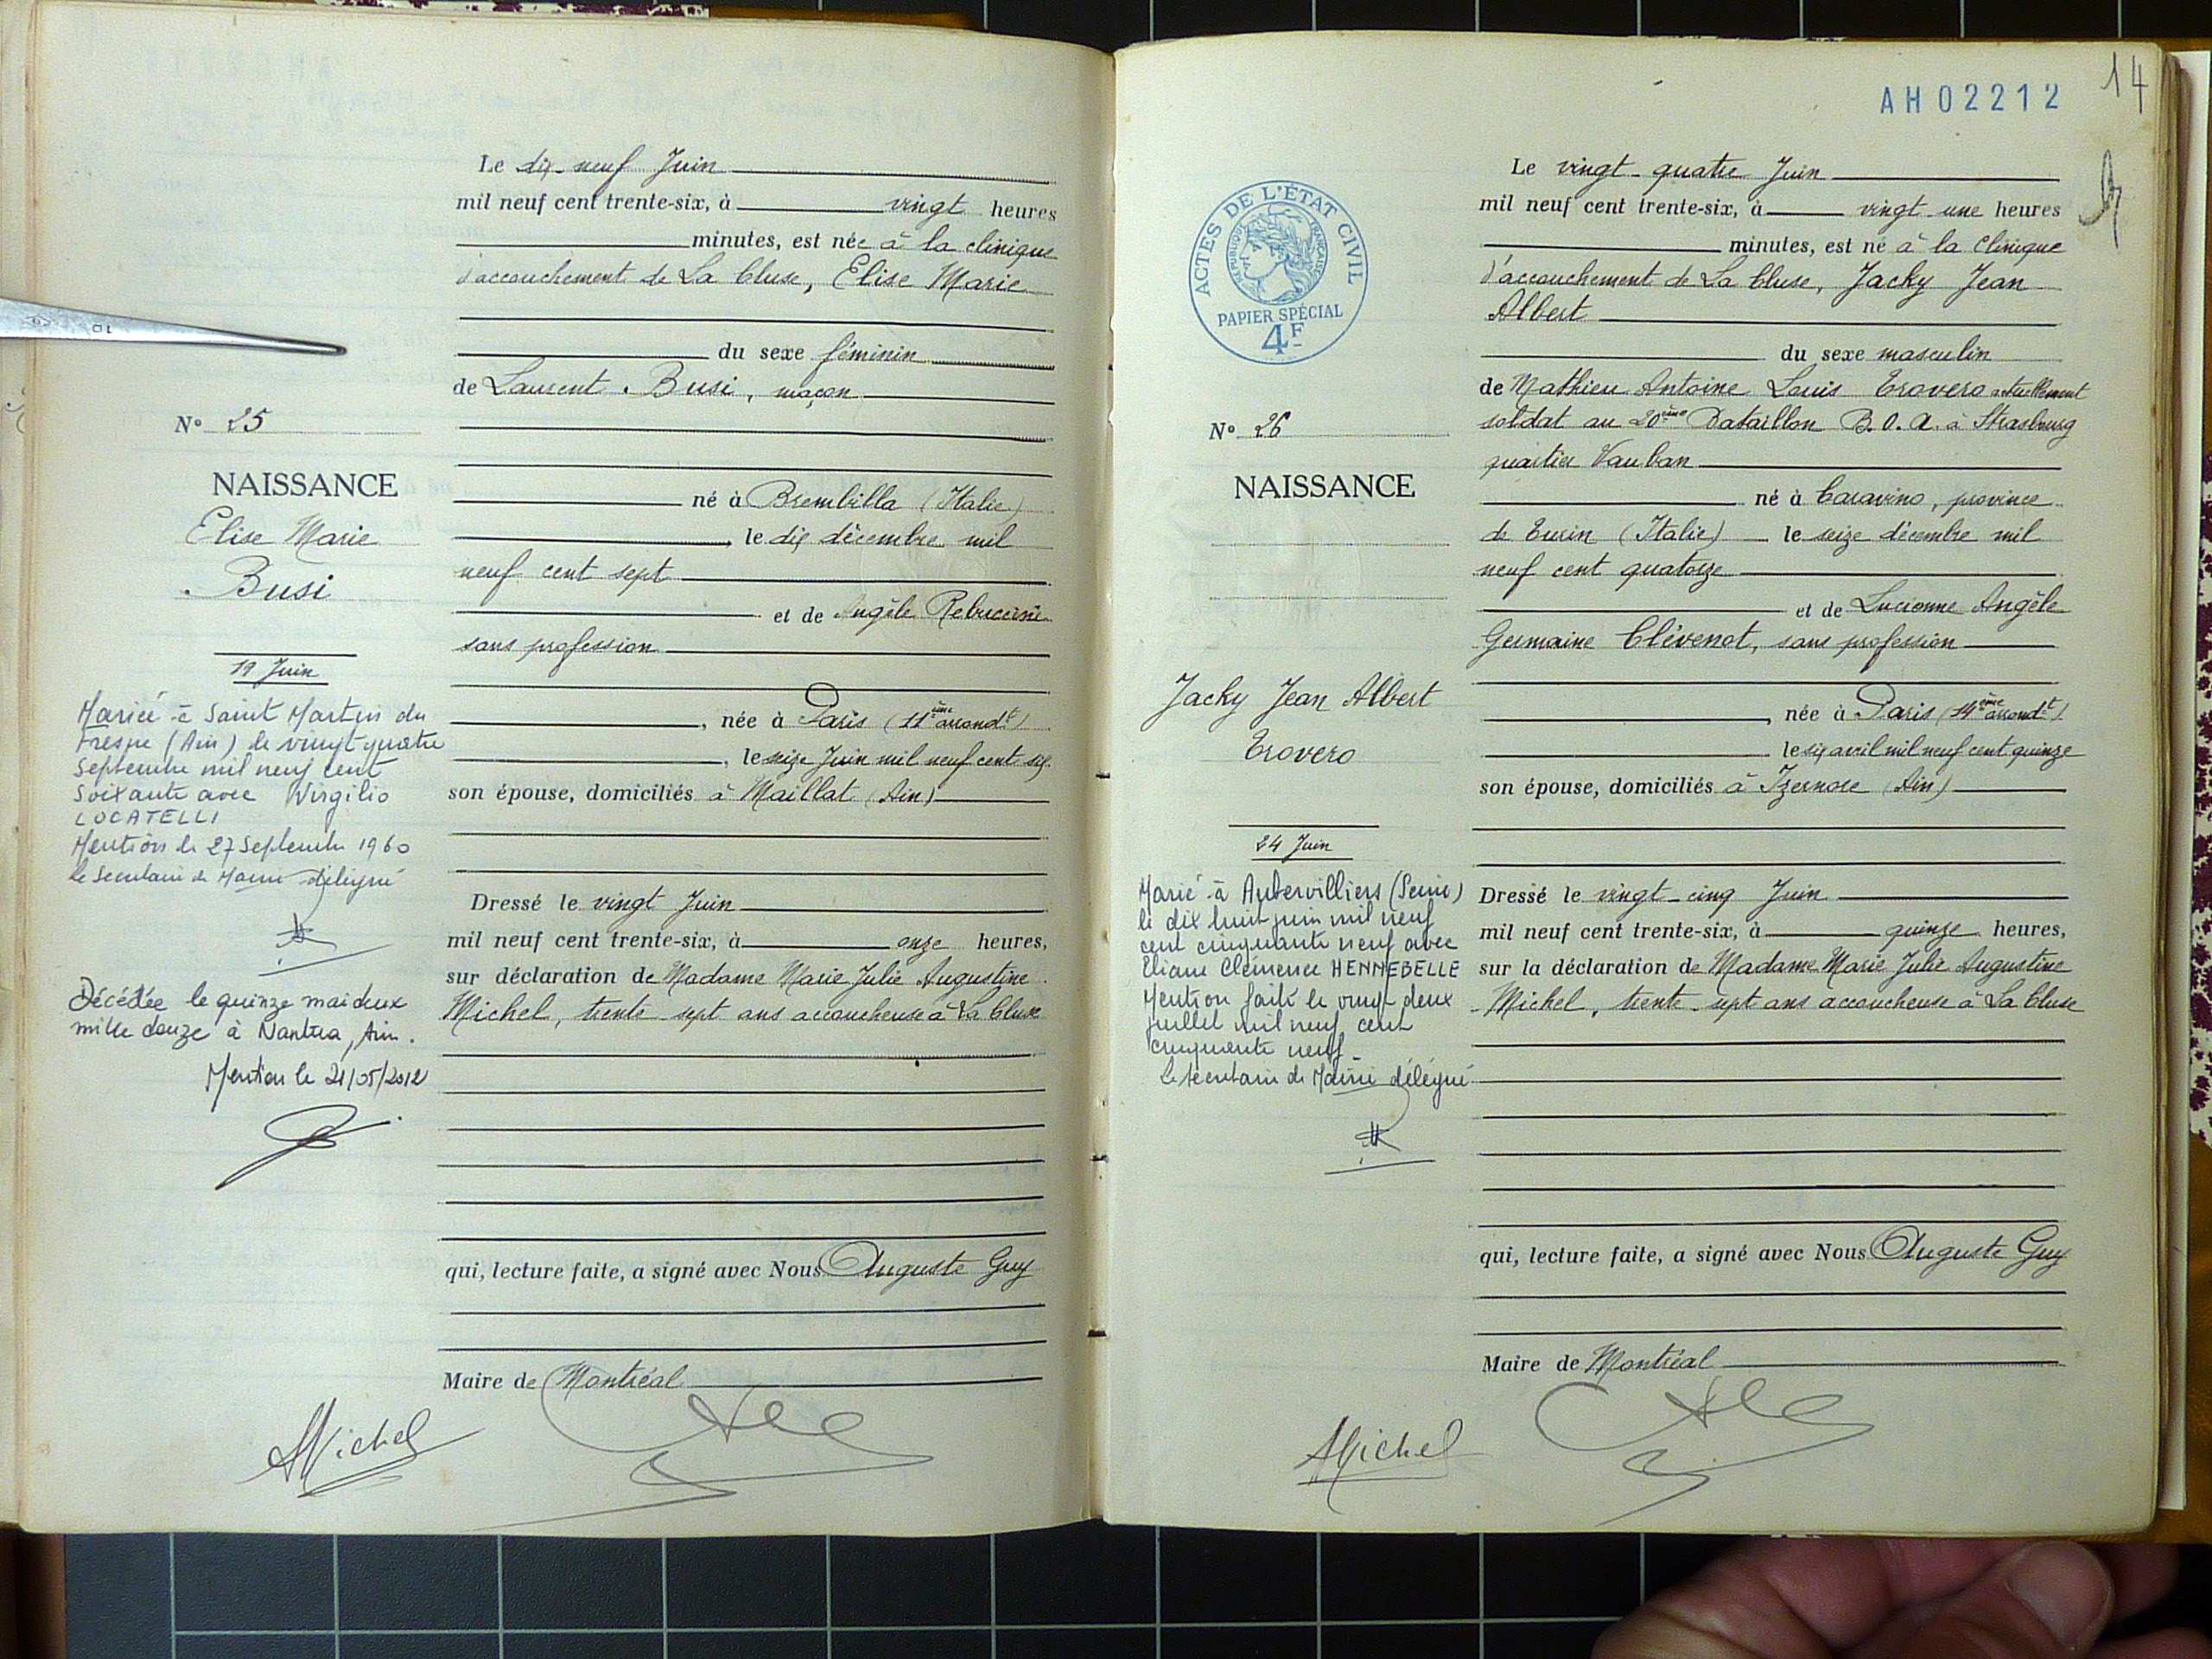 Le dix-neuf Juin
mil neuf cent trente-six, à vingt heures
minutes, est née à la clinique
d'accouchement de La Cluse, Elise Marie
du sexe féminin
de Laurent Busi, maçon
N° 25
NAISSANCE
Elise Marie
Busi
né à Brembilla (Italie)
, le dix décembre mil
neuf cent sept
et de Angèle
sans profession
, née à Paris (11ème arrondt)
, le seize Juin mil neuf cent six
son épouse, domiciliés à Maillat (Ain)
19 Juin
Mariée à Saint Martin du
Fresne (Ain) le vingt quatre
Septembre mil neuf cent
soixante avec Virgilio
LOCATELLI
Mention le 27 Septembre 1960
le Secrétaire de Mairie délégué
Décédée le quinze mai deux
mille douze à Nantua, Ain.
Mention le 21/05/2012
Dressé le vingt Juin
mil neuf cent trente-six, à onze heures,
sur déclaration de Madame Marie Julie Augustine
Michel, trente sept ans accoucheuse à La Cluse
qui, lecture faite, a signé avec Nous Auguste Guy
Maire de Montréal
AMichel
14
AH02212
ACTES DE L'ÉTAT CIVIL
RÉPUBLIQUE FRANÇAISE
PAPIER SPÉCIAL
4F
Le vingt-quatre Juin
mil neuf cent trente-six, à vingt une heures
minutes, est né à la clinique
d'accouchement de La Cluse, Jacky Jean
Albert
du sexe masculin
de Mathieu Antoine Louis Trovero actuellement
soldat au 20ème Bataillon B.O.A. à Strasbourg
quartier Vauban
N° 26
NAISSANCE
né à Caravino, province
de Turin (Italie) le seize décembre mil
neuf cent quatorze
et de Lucienne Angèle
Germaine Clévenot, sans profession
Jacky Jean Albert
Trovero
, née à Paris (14ème arrondt)
le six avril mil neuf cent quinze
son épouse, domiciliés à Izernore (Ain)
24 Juin
Marié à Aubervilliers (Seine)
le dix huit juin mil neuf
cent cinquante neuf avec
Eliane Clémence HENNEBELLE
Mention faite le vingt deux
juillet mil neuf cent
cinquante neuf
Le Secrétaire de Mairie délégué
Dressé le vingt-cinq Juin
mil neuf cent trente-six, à quinze heures,
sur la déclaration de Madame Marie Julie Augustine
Michel, trente-sept ans accoucheuse à La Cluse
qui, lecture faite, a signé avec Nous Auguste Guy
Maire de Montréal
AMichel